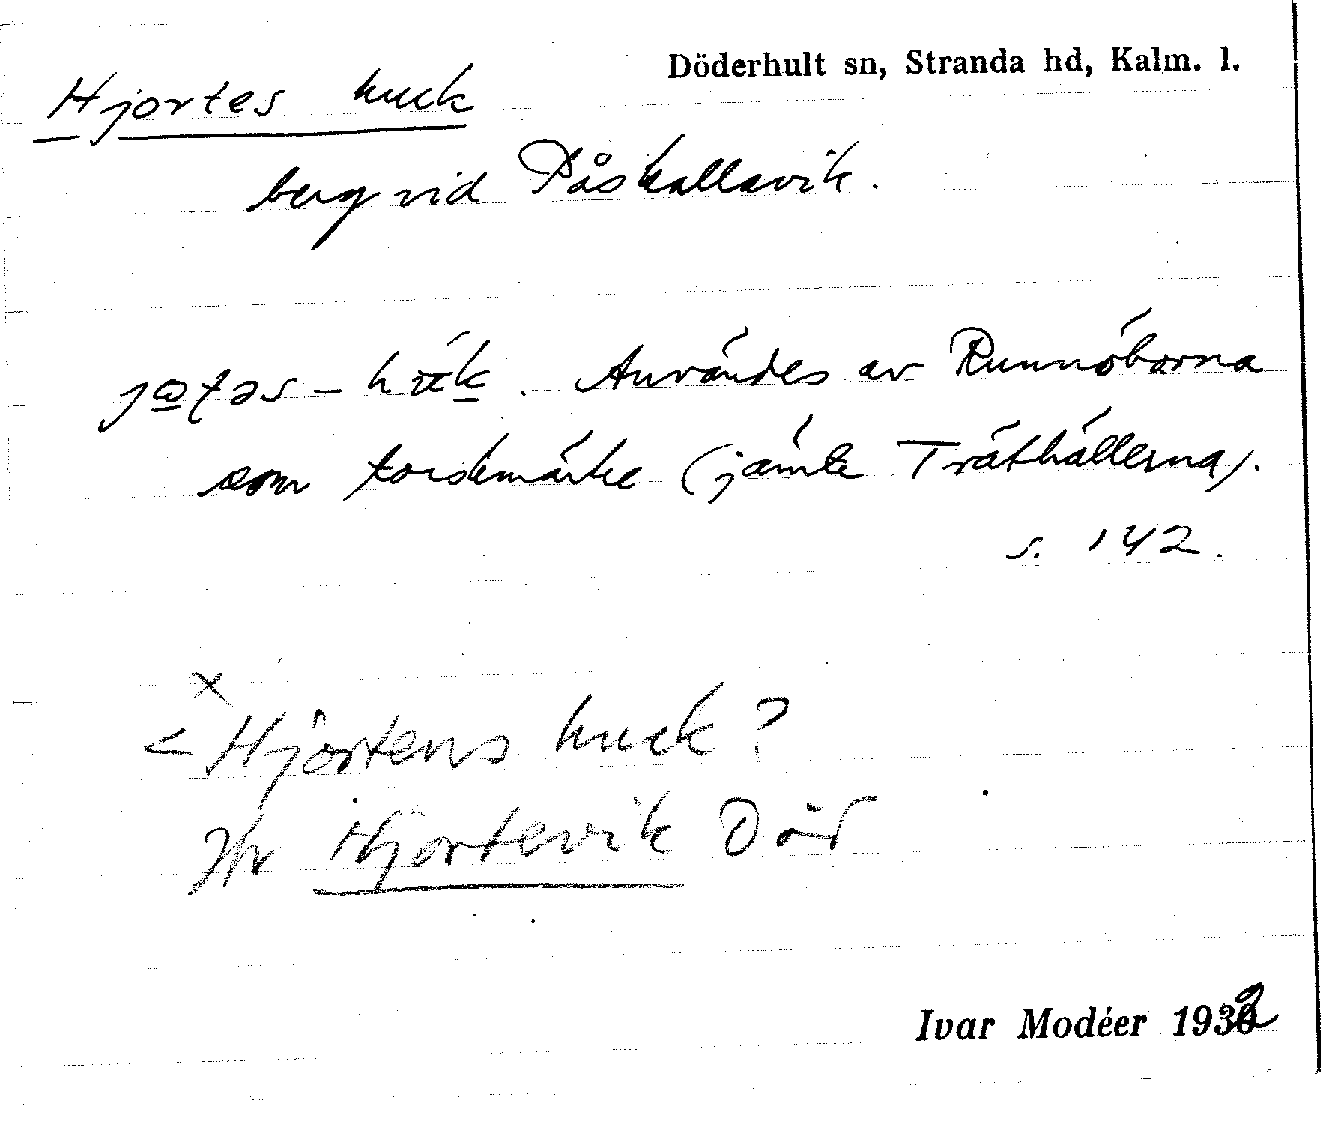 Döderhult sn, Stranda hd, Kalm. l.
Hjortes huck
berg vid Påskallavik.
Användes av Runnöborna
som torskmärke (jämte Träthällerna).
s. 142.
x
< Hjortens huck?
Jfr Hjortevik Död
Ivar Modéer 1932